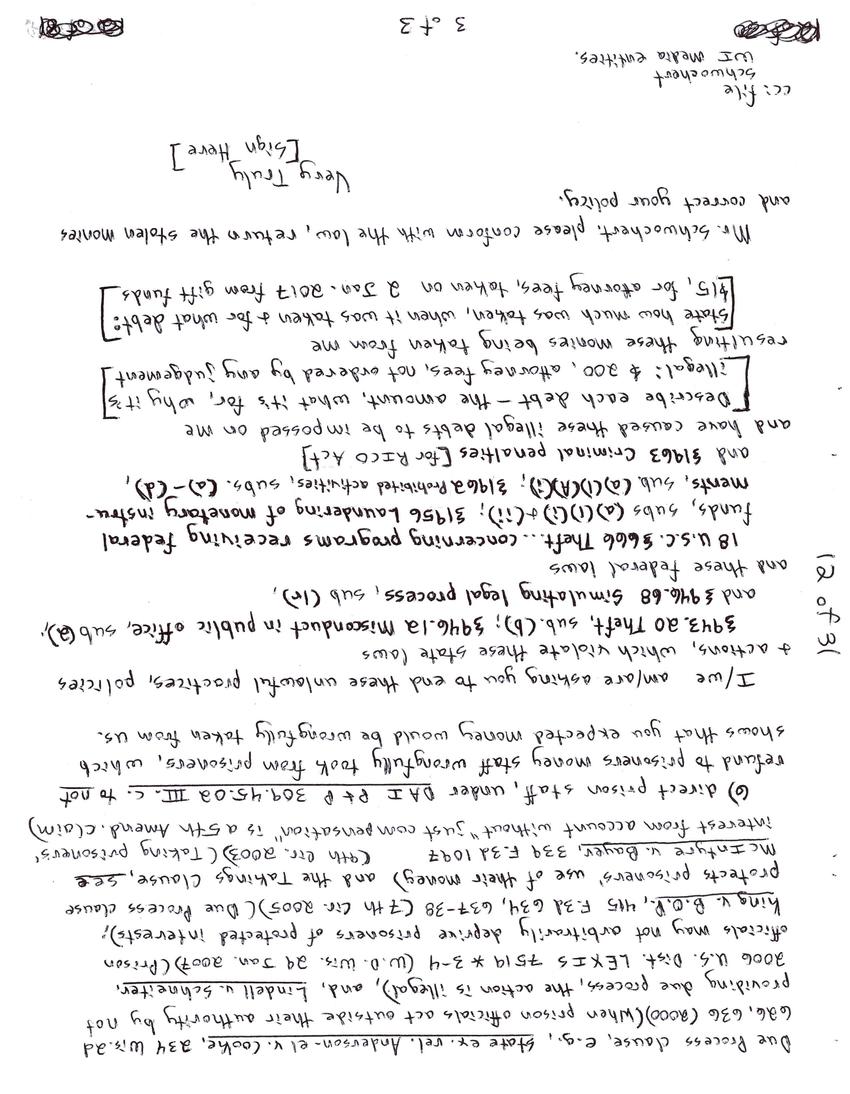 Due Process clause, e.g., State ex. rel. Anderson-el v. Cooke, 234 Wis. 2d
626, 636 (2000)(When prison officials act outside their authority by not
providing due process, the action is illegal), and, Lindell v. Schneiter,
2006 U.S. Dist. LEXIS 7519 * 3-4 (W.D. Wis. 29 Jan. 2007)(Prison
officials may not arbitrarily deprive prisoners of protected interests);
King v. B.O.P., 415 F.3d 634, 637-38 (7th Cir. 2005)(Due Process clause
protects prisoners' use of their money) and the Takings Clause, see
McIntyre v. Bayer, 339 F.3d 1097 (9th Cir. 2003)(Taking prisoners'
interest from account without "just compensation" is a 5th Amend. claim)
6) direct prison staff, under DAI P+P 309.45.02 III. C. to not
refund to prisoners money staff wrongfully took from prisoners, which
shows that you expected money would be wrongfully taken from us.
I/we am/are asking you to end these unlawful practices, policies
+ actions, which violate these state laws
§943.20 Theft, sub. (b); §946.12 Misconduct in public office, sub, (2);
and §946.68 Simulating legal process, sub (1r),
and these federal laws
18 U.S.C. §666 Theft... concerning programs receiving federal
funds, subs (a)(1)(i) + (ii); §1956 Laundering of monetary instru-
ments, sub. (a)(1)(A)(i); §1962 Prohibited activities, subs. (a)-(d),
and §1963 Criminal penalties [for RICO Act]
and have caused these illegal debts to be impossed on me
[Describe each debt - the amount, what it's for, why it's
illegal: $200, attorney fees, not ordered by any judgement]
resulting these monies being taken from me
[State how much was taken, when it was taken + for what debt:
$15, for attorney fees, taken on 2 Jan. 2017 from gift funds]
Mr. Schwochert, please conform with the law, return the stolen monies
and correct your policy.
Very Truly
[Sign Here]
cc: file
Schwochert
WI Media entities.
3 of 3
12 of 31